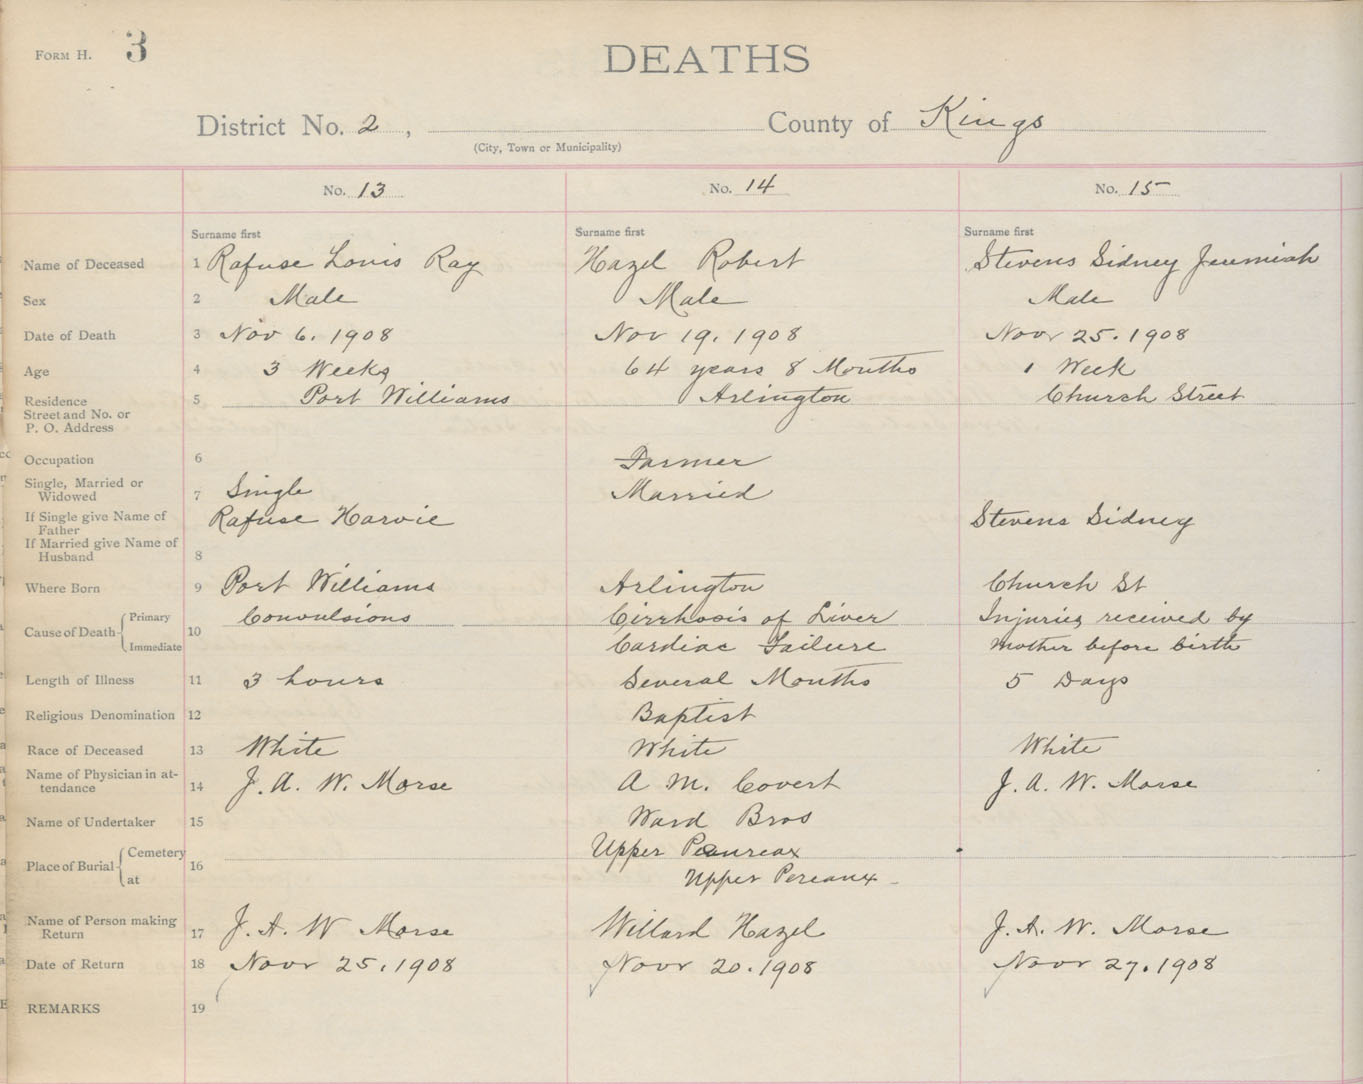 FORM H. 3
DEATHS
District No. 2, County of Kings
(City, Town or Municipality)
No. 13 No. 14 No. 15
Surname first Surname first Surname first
Name of Deceased 1 Rafuse Louis Ray Hazel Robert Stevens Sidney Jeremiah
Sex 2 Male Male Male
Date of Death 3 Nov 6. 1908 Nov 19. 1908 Novr 25. 1908
Age 4 3 Weeks 64 years 8 Months 1 Week
Residence 5 Port Williams Arlington Church Street
Street and No. or
P. O. Address
Occupation 6 Farmer
Single, Married or
Widowed 7 Single Married
If Single give Name of
Father Rafuse Harvie Stevens Sidney
If Married give Name of
Husband 8
Where Born 9 Port Williams Arlington Church St
Cause of Death Primary 10 Convulsions Cirrhosis of Liver Injuries received by
Immediate Cardiac Failure mother before birth
Length of Illness 11 3 hours Several Months 5 Days
Religious Denomination 12 Baptist
Race of Deceased 13 White White White
Name of Physician in at-
tendance 14 J. A. W. Morse A M. Covert J. A. W. Morse
Name of Undertaker 15 Ward Bros
Place of Burial Cemetery 16 Upper
at Upper Pereaux
Name of Person making
Return 17 J. A. W Morse Willard Hazel J. A. W. Morse
Date of Return 18 Novr 25. 1908 Novr 20. 1908 Novr 27. 1908
REMARKS 19